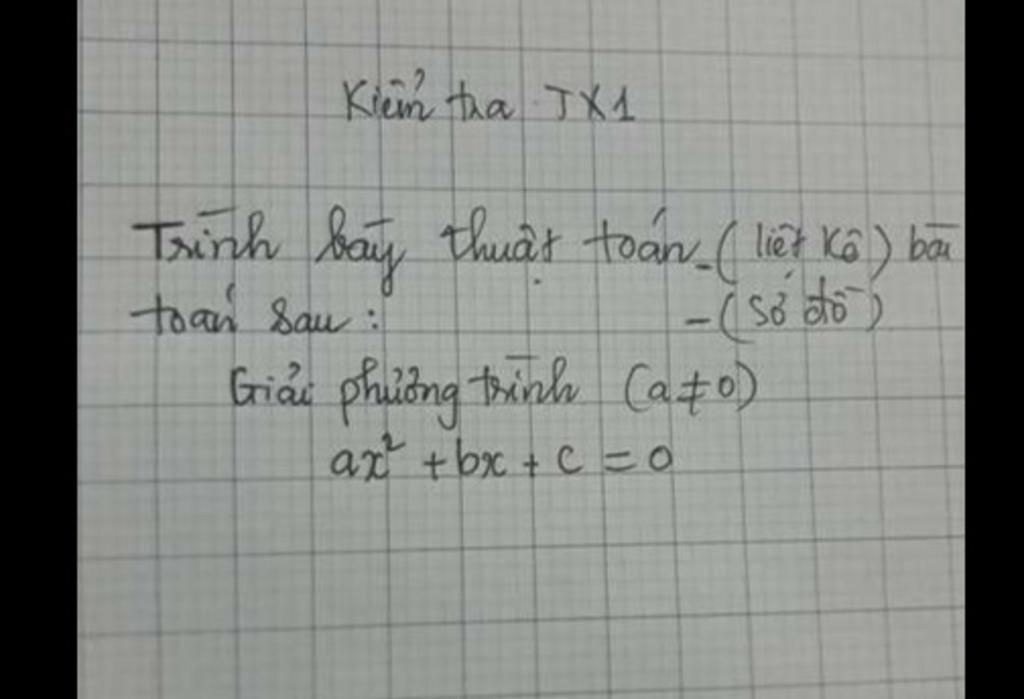 Kiểm tra TX1
Trình bày thuật toán - (liệt kê) bài
toán sau: - (sơ đồ)
Giải phương trình (a ≠ 0)
ax² + bx + c = 0